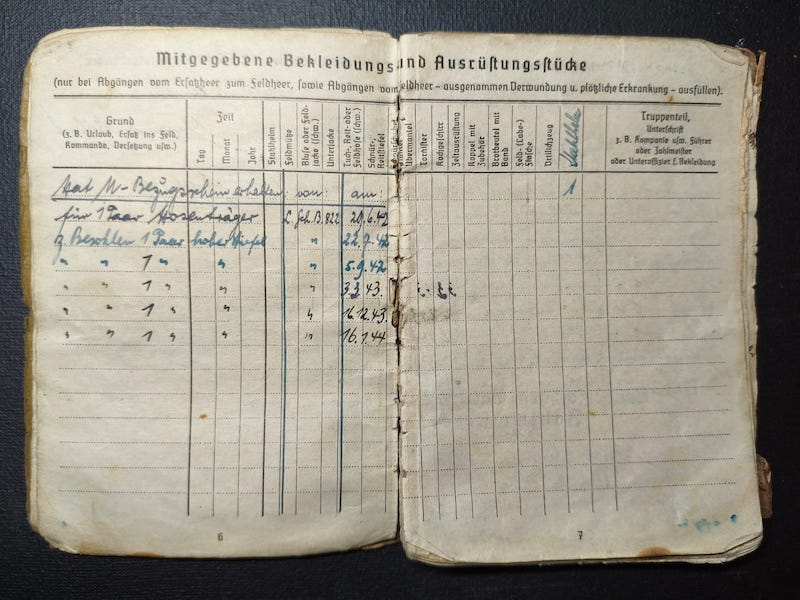 Mitgegebene Bekleidungs und Ausrüstungsstücke
(nur bei Abgängen vom Ersatzheer zum Feldheer, sowie Abgängen vom Feldheer – ausgenommen Verwundung u. plötzliche Erkrankung – ausfüllen).
Grund
(z. B. Urlaub, Ersatz ins Feld,
Kommando, Versetzung usw.)
Zeit
Tag
Monat
Jahr
Stahlhelm
Feldmütze
Bluse oder Feld-
jacke (schw.)
Unterjacke
Tuch-, Reit- oder
Feldhose (schw.)
Schnür-,
Reitstiefel
Übermantel
Tornister
Kochgeschirr
Zeltausrüstung
Koppel mit
Zubehör
Brotbeutel mit
Band
Feld- (Labe-)
flasche
Drillichzeug
Truppenteil,
Unterschrift
z. B. Kompanie usw. Führer
oder Zahlmeister
oder Unteroffizier f. Bekleidung
Hat M-Bezugsschein erhalten: von: am: 1
für 1 Paar Hosenträger L. Sch. B. 822 29.6.42
z. Besohlen 1 Paar hoher Stiefel " 22.7.42
" " 1 " " " 5.9.42
" " 1 " " " 3.3.43.
" " 1 " " " 16.12.43.
" " 1 " " " 16.1.44
6
7